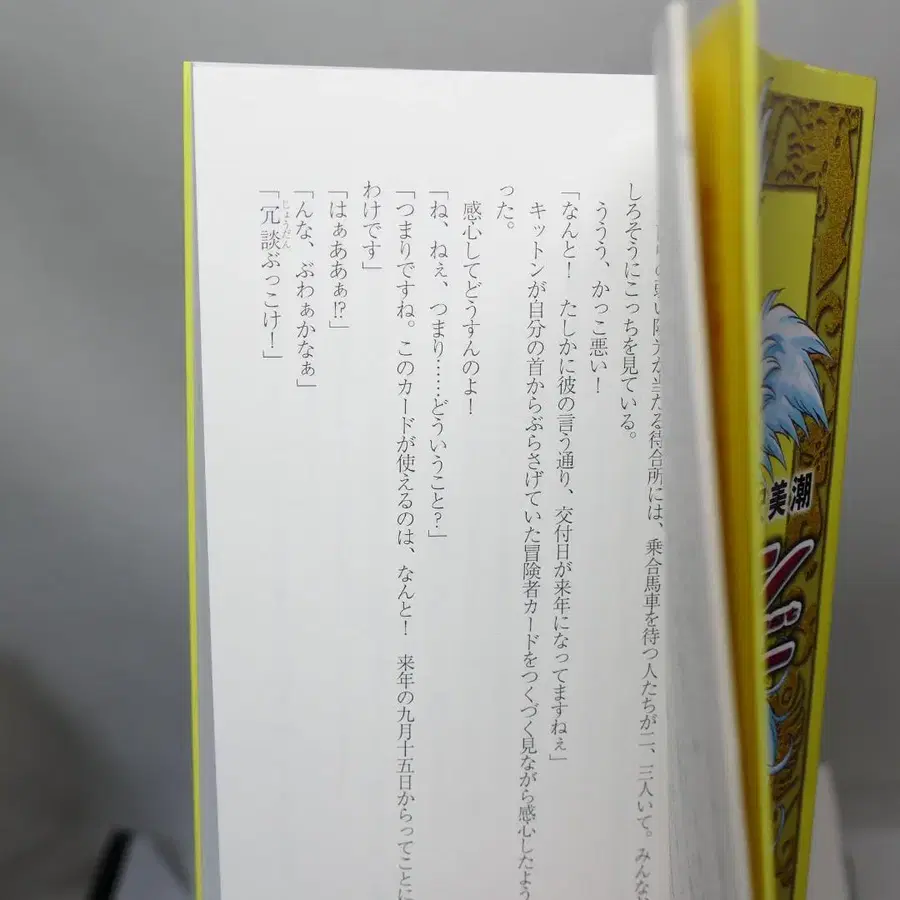 陽光が当たる待合所には、乗合馬車を待つ人たちが二、三人いて。みんな
しろそうにこっちを見ている。
ううう、かっこ悪い！
「なんと！　たしかに彼の言う通り、交付日が来年になってますねぇ」
キットンが自分の首からぶらさげていた冒険者カードをつくづく見ながら感心したよう
った。
感心してどうすんのよ！
「ね、ねぇ、つまり……どういうこと？」
「つまりですね。このカードが使えるのは、なんと！　来年の九月十五日からってことに
わけです」
「はぁああぁ!?」
「んな、ぶわぁかなぁ」
「冗談ぶっこけ！」
じょうだん
美潮